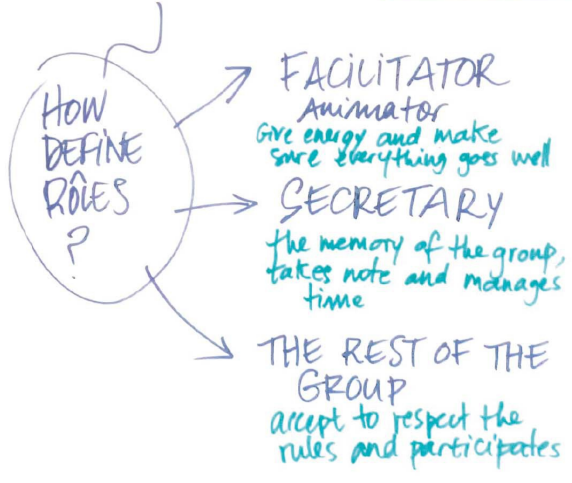 HOW
DEFINE
RÔLES
?
FACILITATOR
Animator
Give energy and make
sure everything goes well
SECRETARY
the memory of the group,
takes note and manages
time
THE REST OF THE
GROUP
accept to respect the
rules and participates